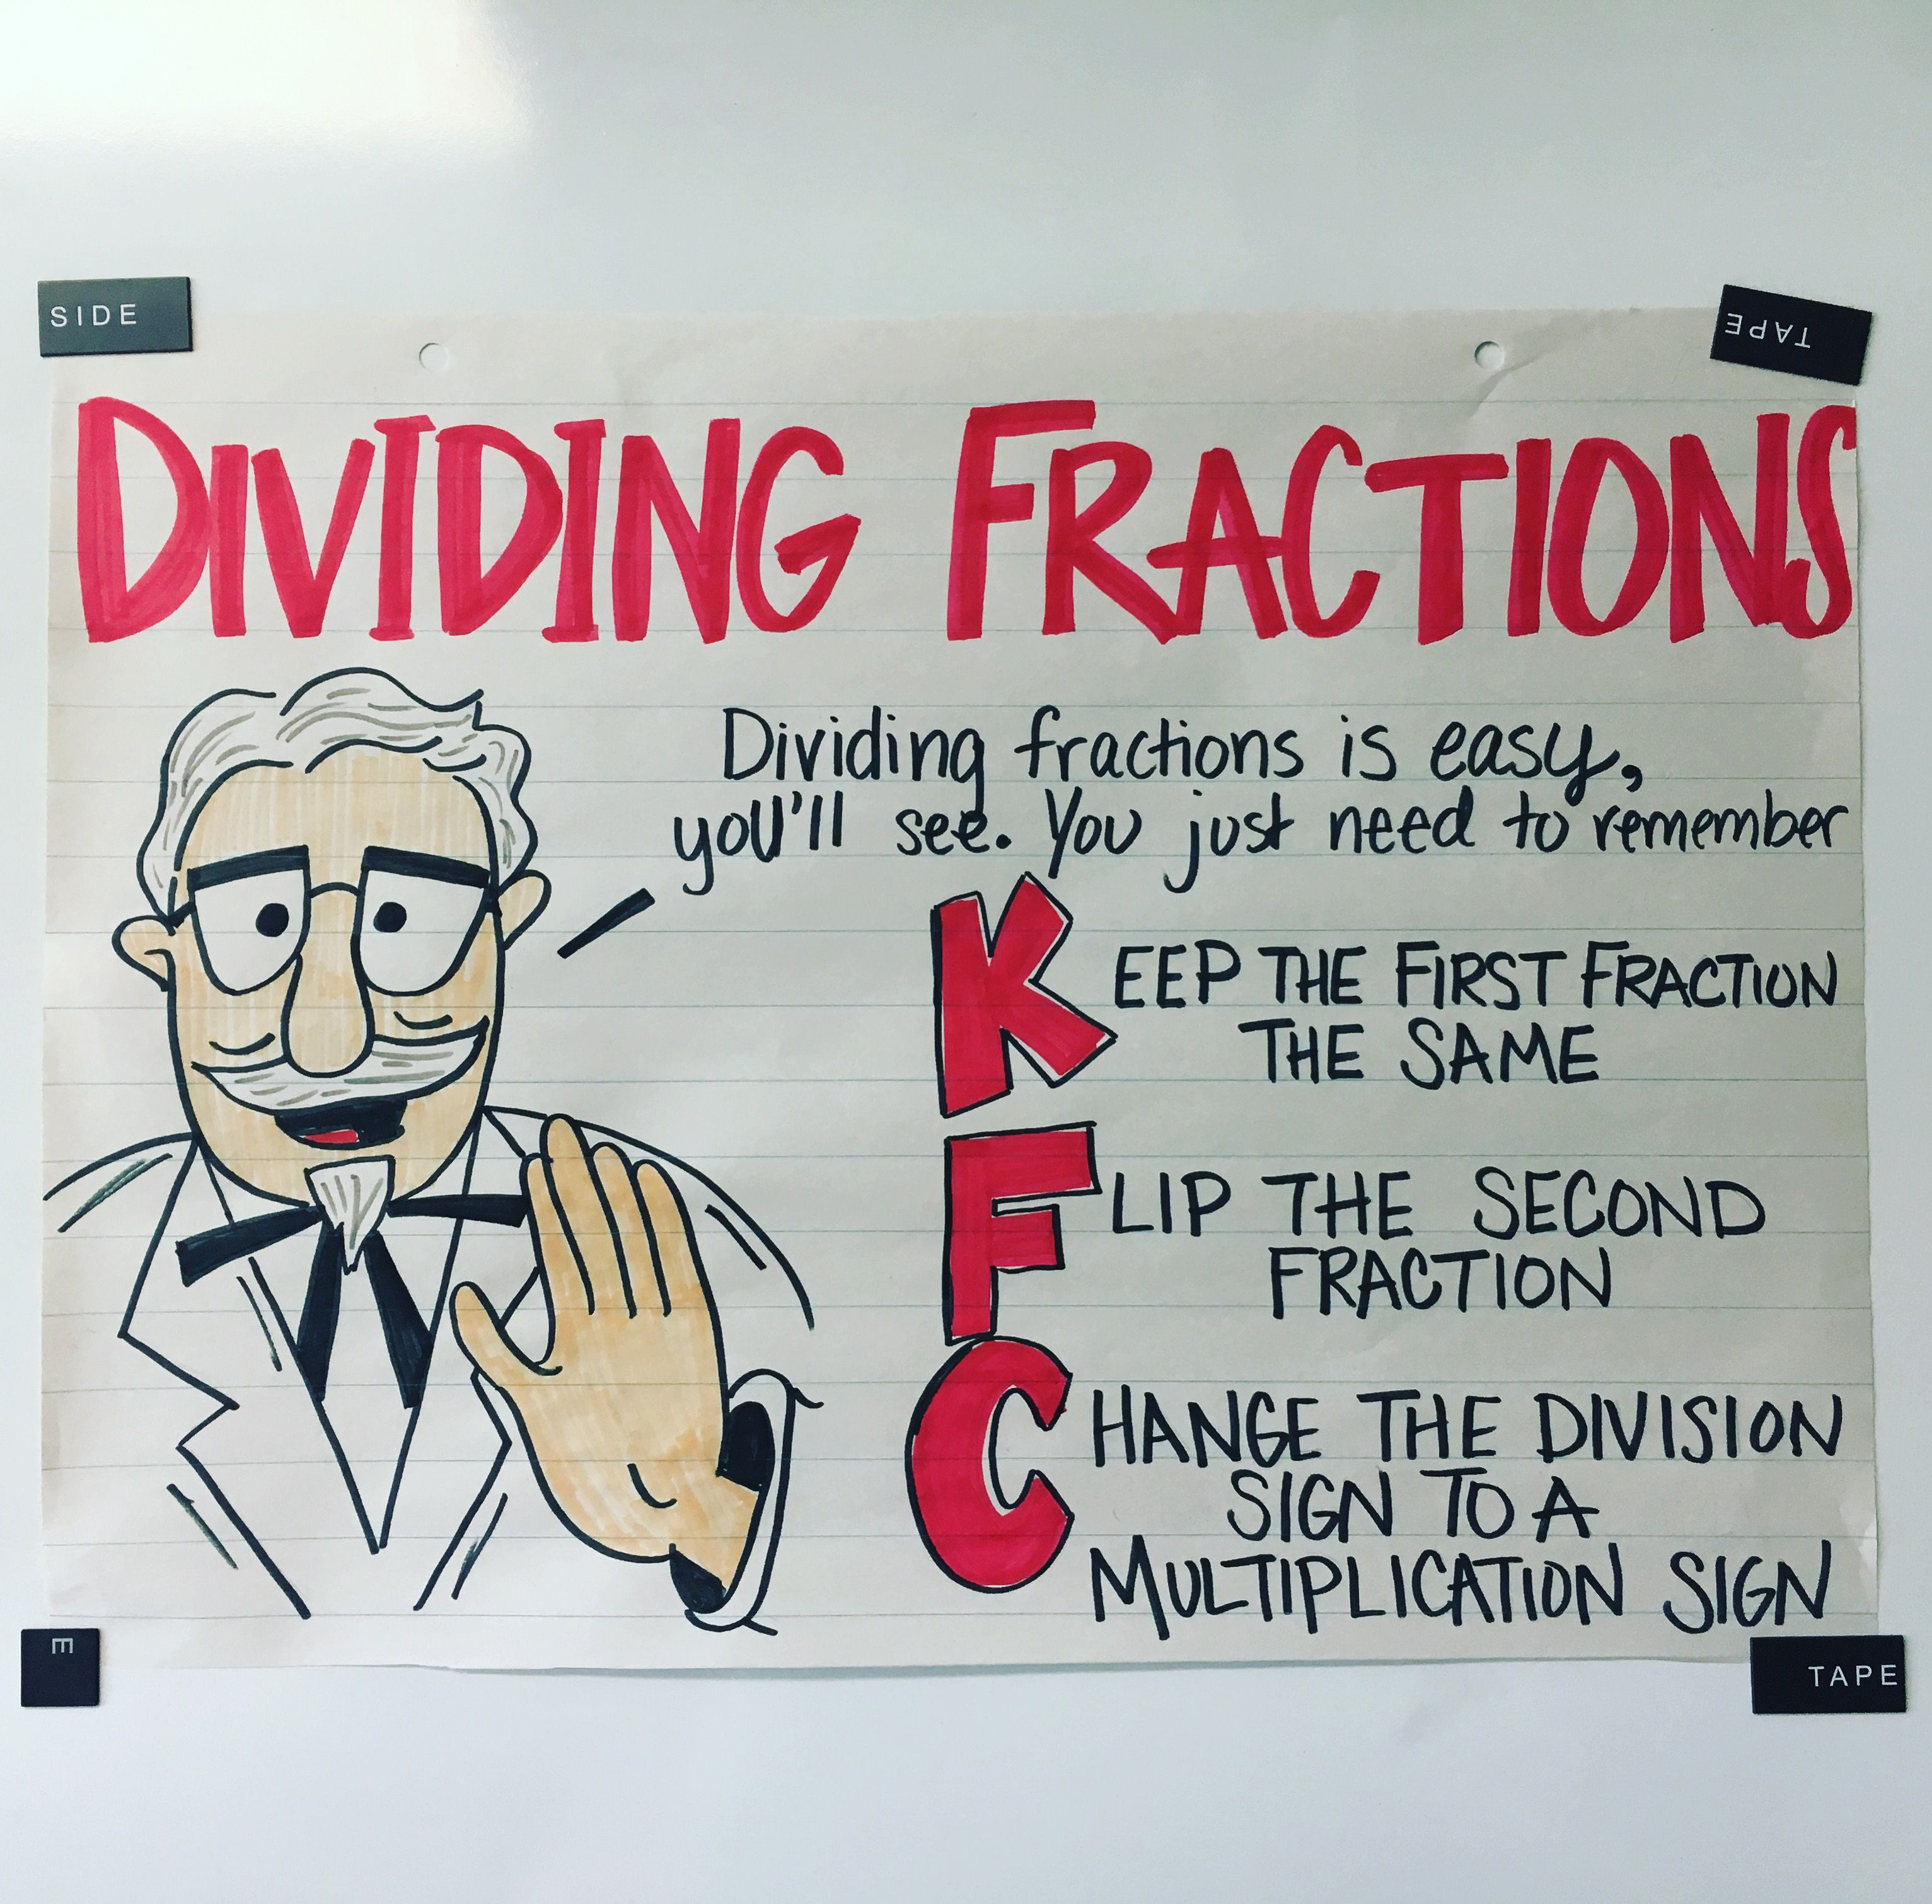 SIDE
TAPE
DIVIDING FRACTIONS
Dividing fractions is easy,
you'll see. You just need to remember
KEEP THE FIRST FRACTION
THE SAME
FLIP THE SECOND
FRACTION
CHANGE THE DIVISION
SIGN TO A
MULTIPLICATION SIGN
E
TAPE